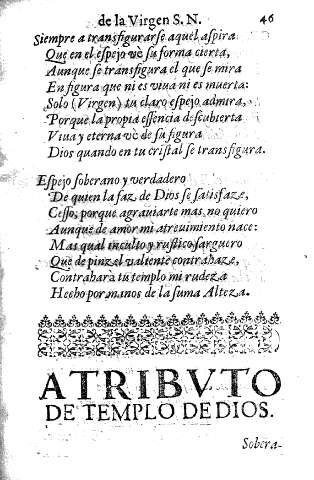 de la Virgen S. N. 46
Siempre a transfigurarse aquel aspira
Que en el espejo vè su forma cierta,
Aunque se transfigura el que se mira
En figura que ni es viua ni es muerta:
Solo (Virgen) tu claro espejo admira,
Porque la propia essencia descubierta
Viua y eterna vè de su figura
Dios quando en tu cristal se transfigura.
Espejo soberano y verdadero
De quien la faz de Dios se satisfaze,
Cesso, porque agrauiarte mas no quiero
Aunque de amor mi atreuimiento nace:
Mas qual inculto y rustico jarguero
Que de pinzel valiente contrahaze,
Contrahara tu templo mi rudeza
Hecho por manos de la suma Alteza.
ATRIBVTO
DE TEMPLO DE DIOS.
Sobera-